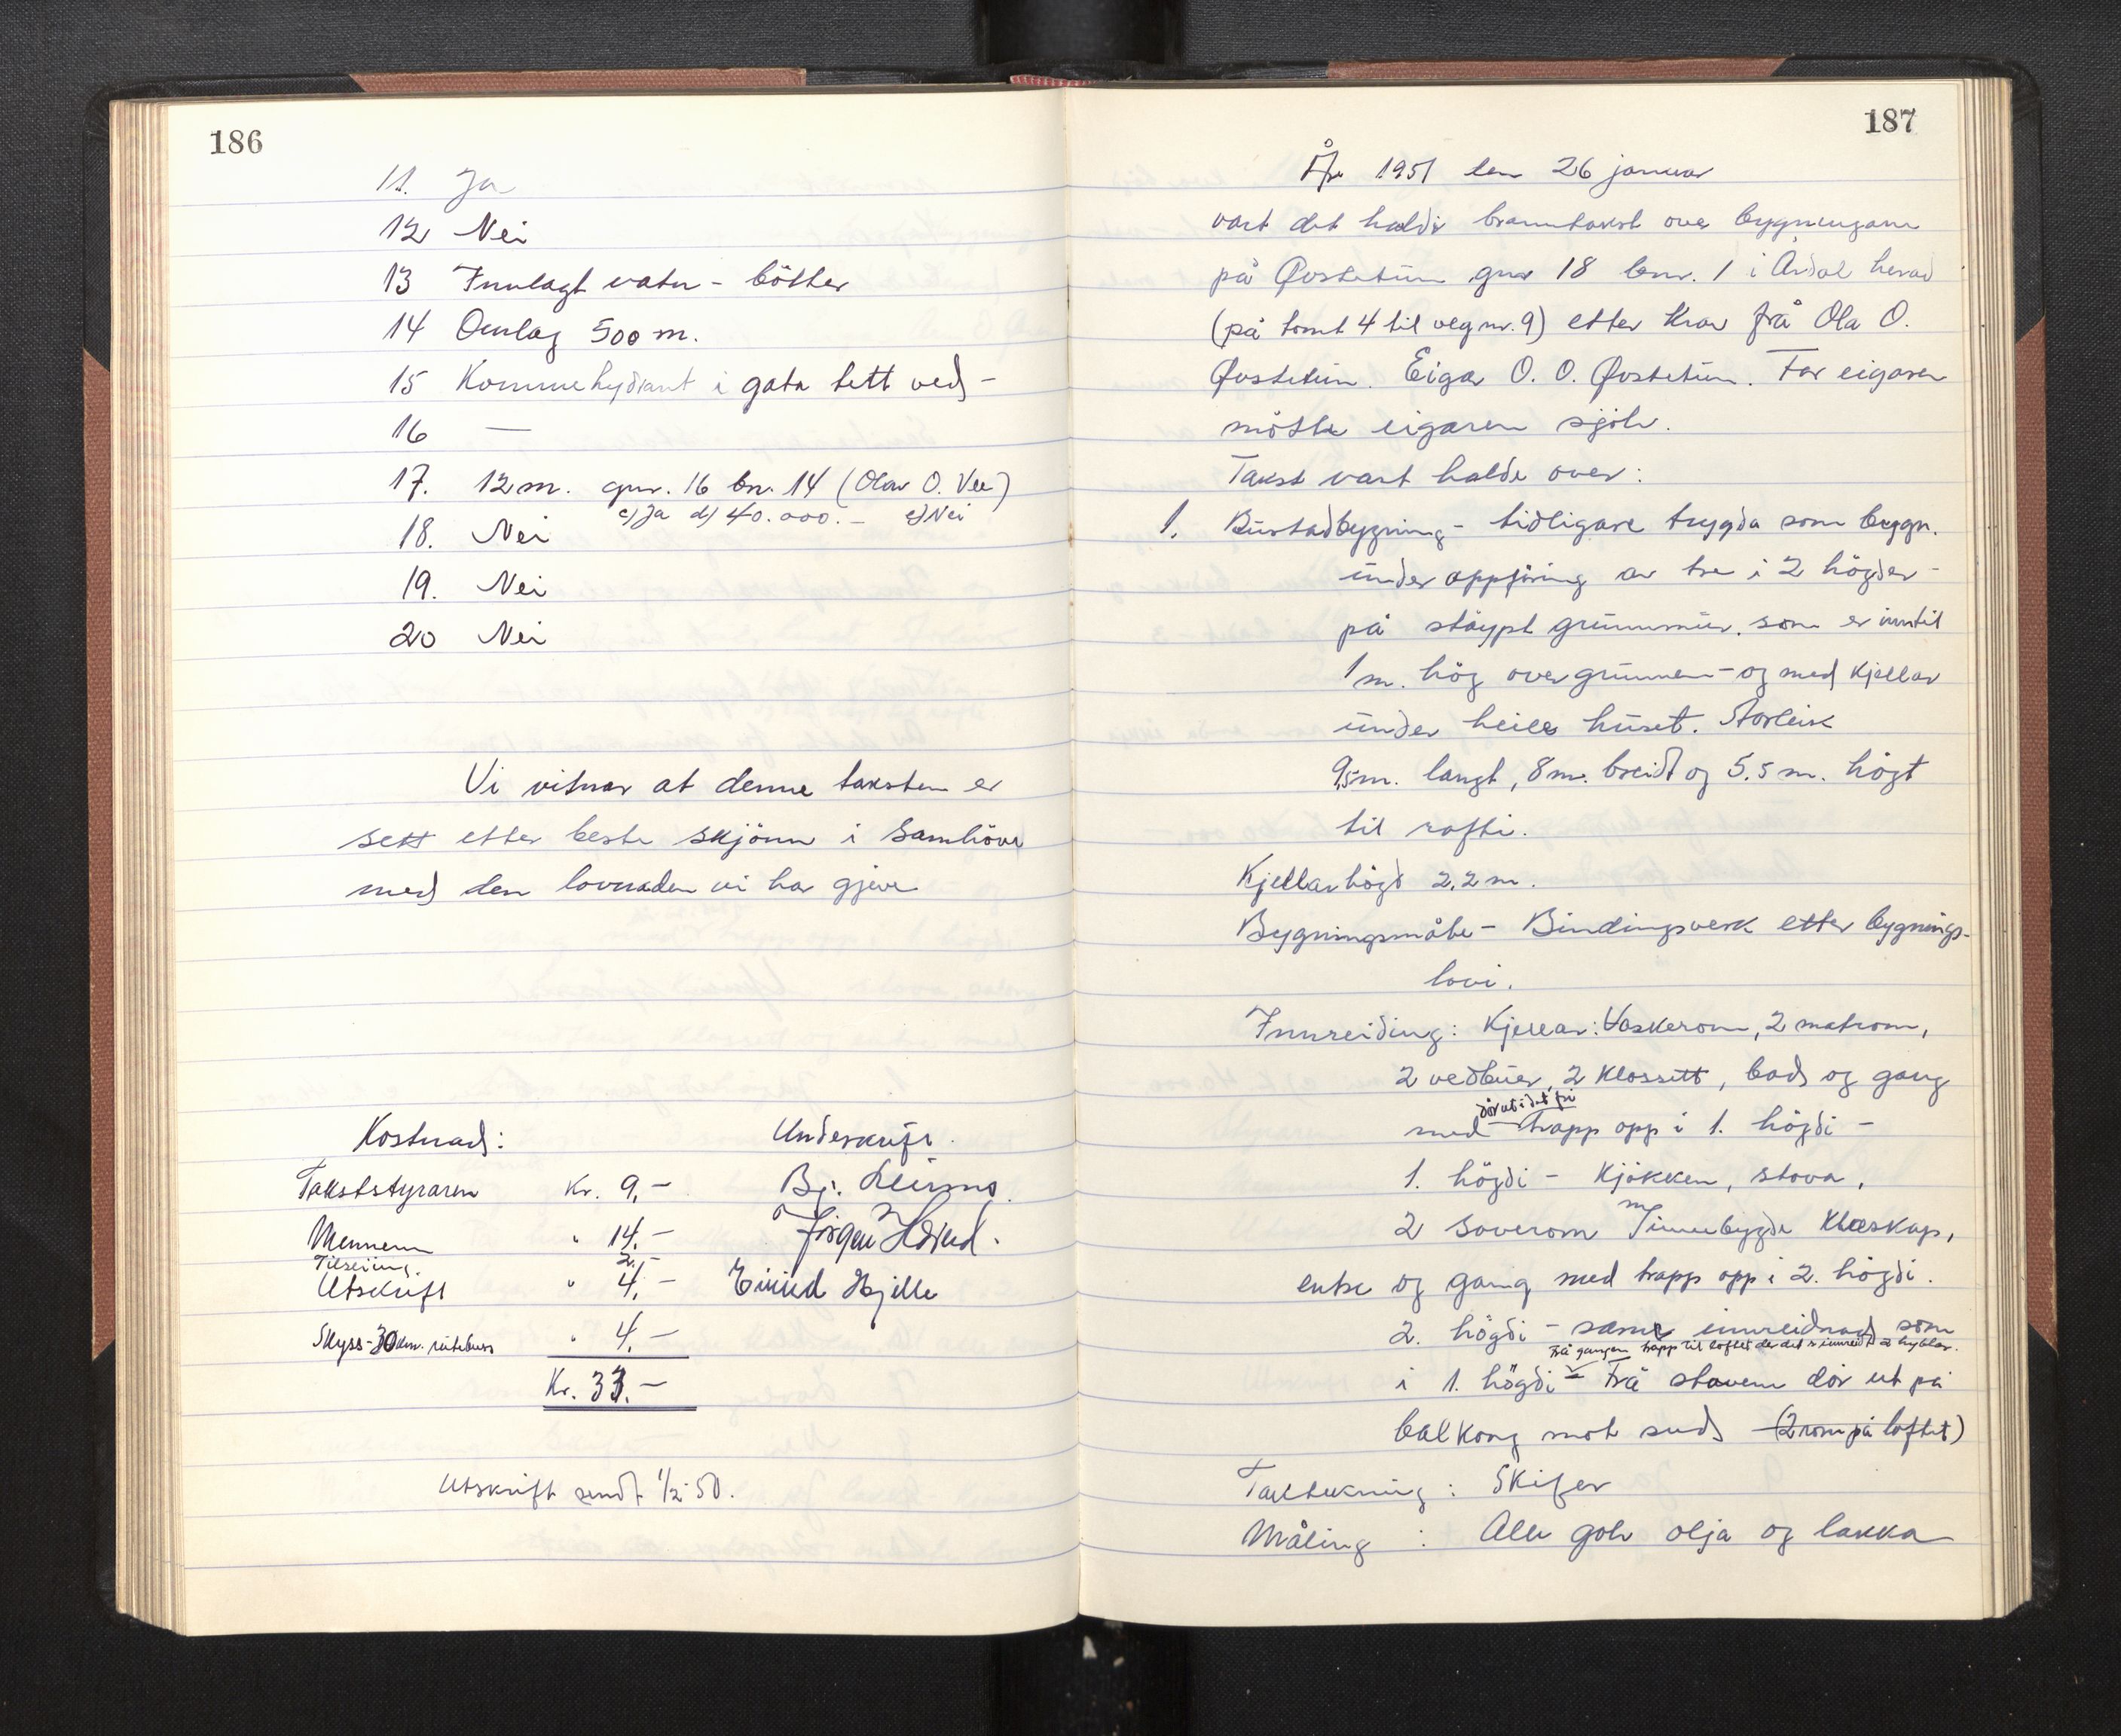 186
11. Ja
12 Nei
13 Innlagt vatn - bötter
14 Omlag 500 m.
15 Komme hydrant i gata tett ved -
16 —
17. 12 m. gnr. 16 bn. 14 (Olav O. Vee)
c) Ja d) 40.000.- e) Nei
18. Nei
19. Nei
20 Nei
Vi vitnar at denne taksten er
sett etter beste skjönn i samhöve
med den lovnaden vi har gjeve
Kostnad: Underskrift.
Takststyraren Kr. 9,- Bj.
Mennene " 14,- Jörgen
Tilseiing. 2,-
Utskrift " 4,- Eivind Hjelle
Skyss - 30 km. rutebuss " 4,-
Kr. 33.-
Utskrift sendt 1/2 50.
187
År 1951 den 26 januar
vart det halde branntakst over bygningane
på Øvstetun gnr 18 bnr. 1 i Årdal herad
(på tomt 4 til veg nr. 9) etter krav frå Ola O.
Øvstetun. Eigar O. O. Øvstetun. For eigaren
mötte eigaren sjölv.
Takst vart halde over:
1. Bustadbygning - tidligare trygda som bygn.
under oppföring av tre i 2 högder -
på stöypt grunnmur. som er inntil
1 m. hög over grunnen - og med kjellar
under heile huset. Storleik
9,5 m. langt, 8 m. breidt og 5.5 m. högt
til rafti.
Kjellarhögd 2,2 m.
Bygningsmåte - Bindingsverk etter bygnings-
lovi.
Innreiding: Kjellar: Vaskerom, 2 matrom,
2 vedbuer, 2 klossett, bad og gang
dör ut i det fri
med - trapp opp i 1. högdi -
1. högdi - Kjökken, stova,
2 soverom m/innebygde klæskap,
entre og gang med trapp opp i 2. högdi.
2. högdi - same innreidnad som
Frå gangen trapp til loftet der det er innreidd 2 hyblar.
i 1. högdi - Frå stovene dör ut på
balkong mot sud - (2 rom på loftet)
Taktekning: Skifer
Måling : Alle golv olja og lakka